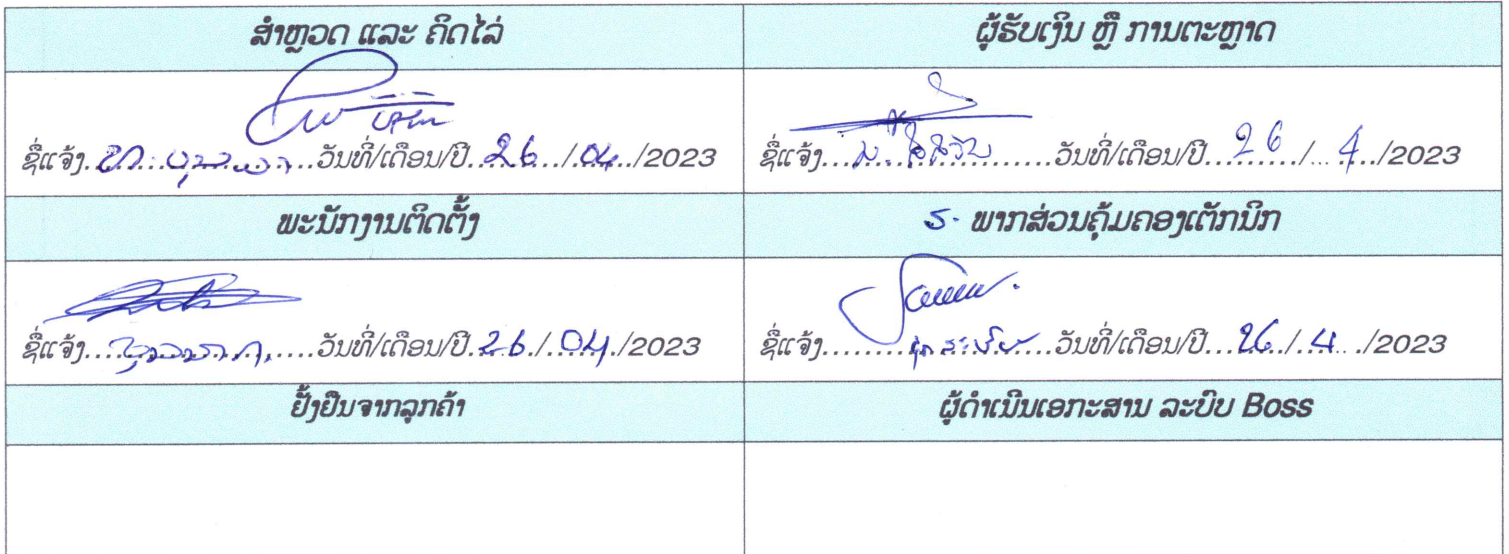 ສຳຫຼວດ ແລະ ຄິດໄລ່
ຜູ້ຮັບເງິນ ຫຼື ການຕະຫຼາດ
ຊື່ແຈ້ງ.....ວັນທີ່/ເດືອນ/ປີ..26../.04../2023
ຊື່ແຈ້ງ.....ວັນທີ່/ເດືອນ/ປີ...26..../... 4../2023
ພະນັກງານຕິດຕັ້ງ
ຮ. ພາກສ່ວນຄຸ້ມຄອງເຕັກນິກ
ຊື່ແຈ້ງ.....ວັນທີ່/ເດືອນ/ປີ.26./.04./2023
ຊື່ແຈ້ງ.....ວັນທີ່/ເດືອນ/ປີ...26../.4.../2023
ຢັ້ງຢືນຈາກລູກຄ້າ
ຜູ້ດຳເນີນເອກະສານ ລະບົບ Boss